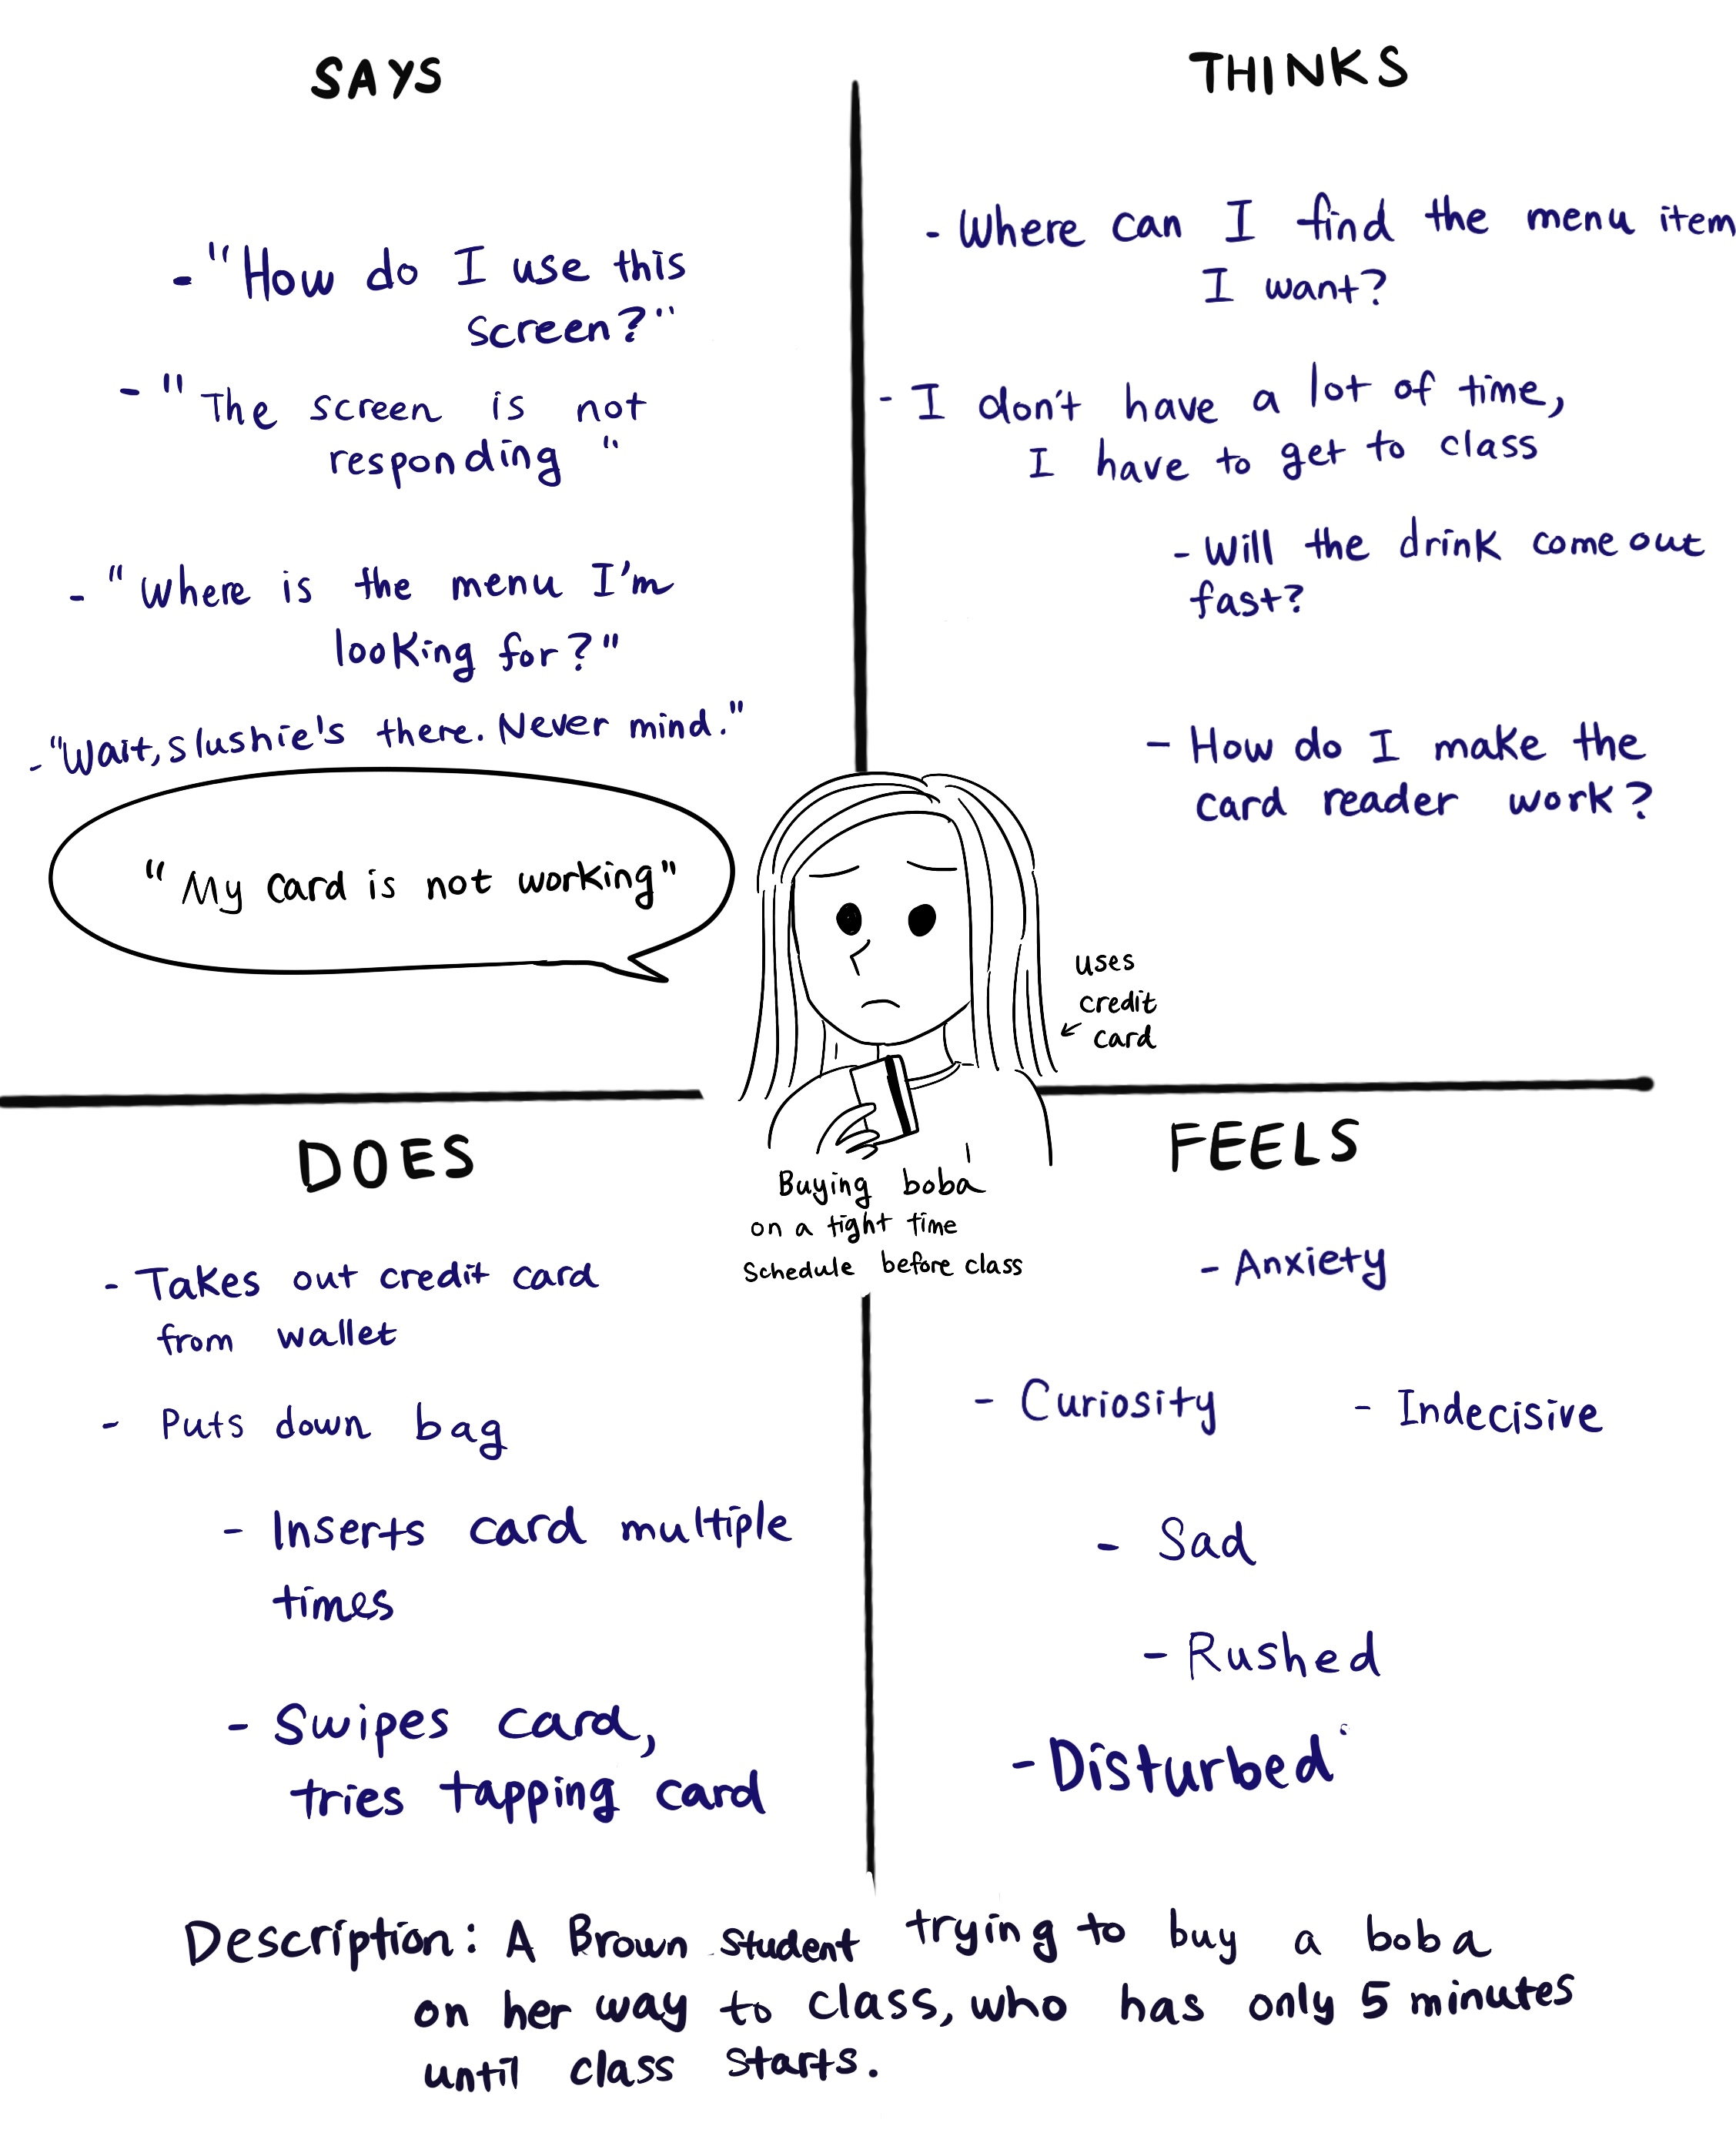 SAYS
- "How do I use this
screen?"
- "The screen is not
responding"
- "Where is the menu I'm
looking for?"
- "Wait, slushie's there. Never mind."
"My card is not working"
THINKS
- Where can I find the menu item
I want?
- I don't have a lot of time,
I have to get to class
- Will the drink come out
fast?
- How do I make the
card reader work?
uses
credit
card
Buying boba
on a tight time
schedule before class
DOES
- Takes out credit card
from wallet
- Puts down bag
- Inserts card multiple
times
- Swipes card,
tries tapping card
FEELS
- Anxiety
- Curiosity - Indecisive
- Sad
- Rushed
- Disturbed
Description: A Brown student trying to buy a boba
on her way to class, who has only 5 minutes
until class starts.